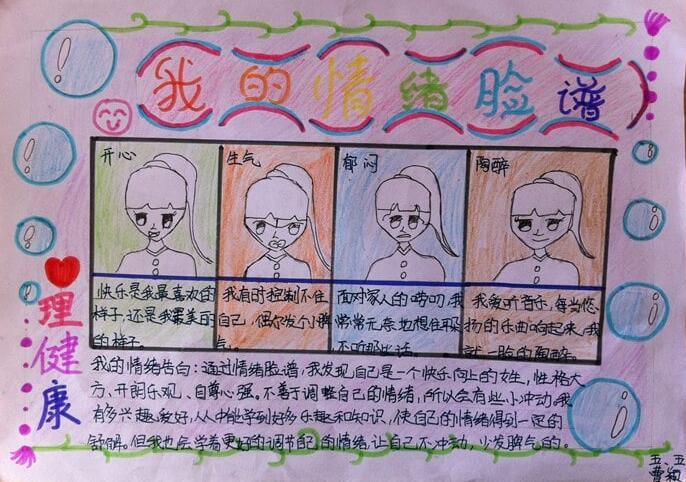 我的情绪脸谱
开心
生气
郁闷
陶醉
快乐是我最喜欢的
样子,还是我最美丽
的样子。
我有时控制不住
自己,偶尔发个小脾
气。
面对家人的唠叨,我
常常无奈地想住耳朵
不听那些话。
我爱听音乐,每当悠
扬的乐曲响起来,我
就一脸的陶醉。
理健康
我的情绪告白:通过情绪脸谱,我发现自己是一个快乐向上的女生,性格大
方、开朗乐观、自尊心强。不善于调整自己的情绪,所以会有些小冲动。我
有多兴趣爱好,从中能学到好多乐趣和知识,使自己的情绪得到一定的
舒解。但我也会学着更好的调节自己的情绪,让自己不冲动,少发脾气的。
五、五
曹颖